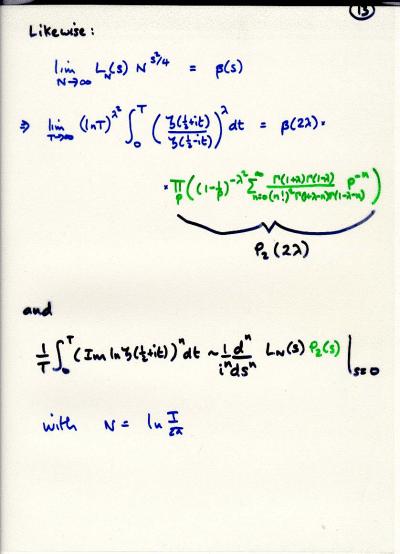 13
Likewise:
lim_{N→∞} L_N(s) N^{s²/4} = β(s)
⇒ lim_{T→∞} (ln T)^{λ²} ∫_0^T (ζ(½+it)/ζ(½-it))^λ dt = β(2λ) ×
× ∏_p ((1-1/p)^{-λ²} ∑_{n=0}^∞ Γ(1+λ)Γ(1-λ)/((n!)²Γ(1+λ-n)Γ(1-λ-n)) p^{-n})
P₂(2λ)
and
1/T ∫_0^T (Im ln ζ(½+it))^n dt ~ 1/i^n d^n/ds^n L_N(s) P₂(s) |_{s=0}
with N = ln T/2π